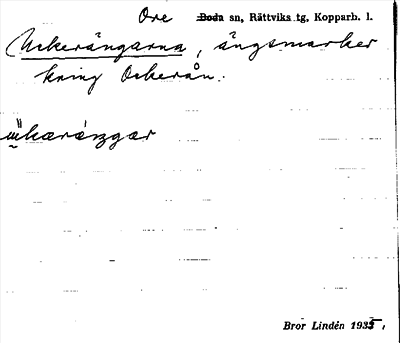 Ore Boda sn, Rättviks tg, Kopparb. l.
Ackerängarna, ängsmarker
kring Ockerån.
Bror Lindén 1935,